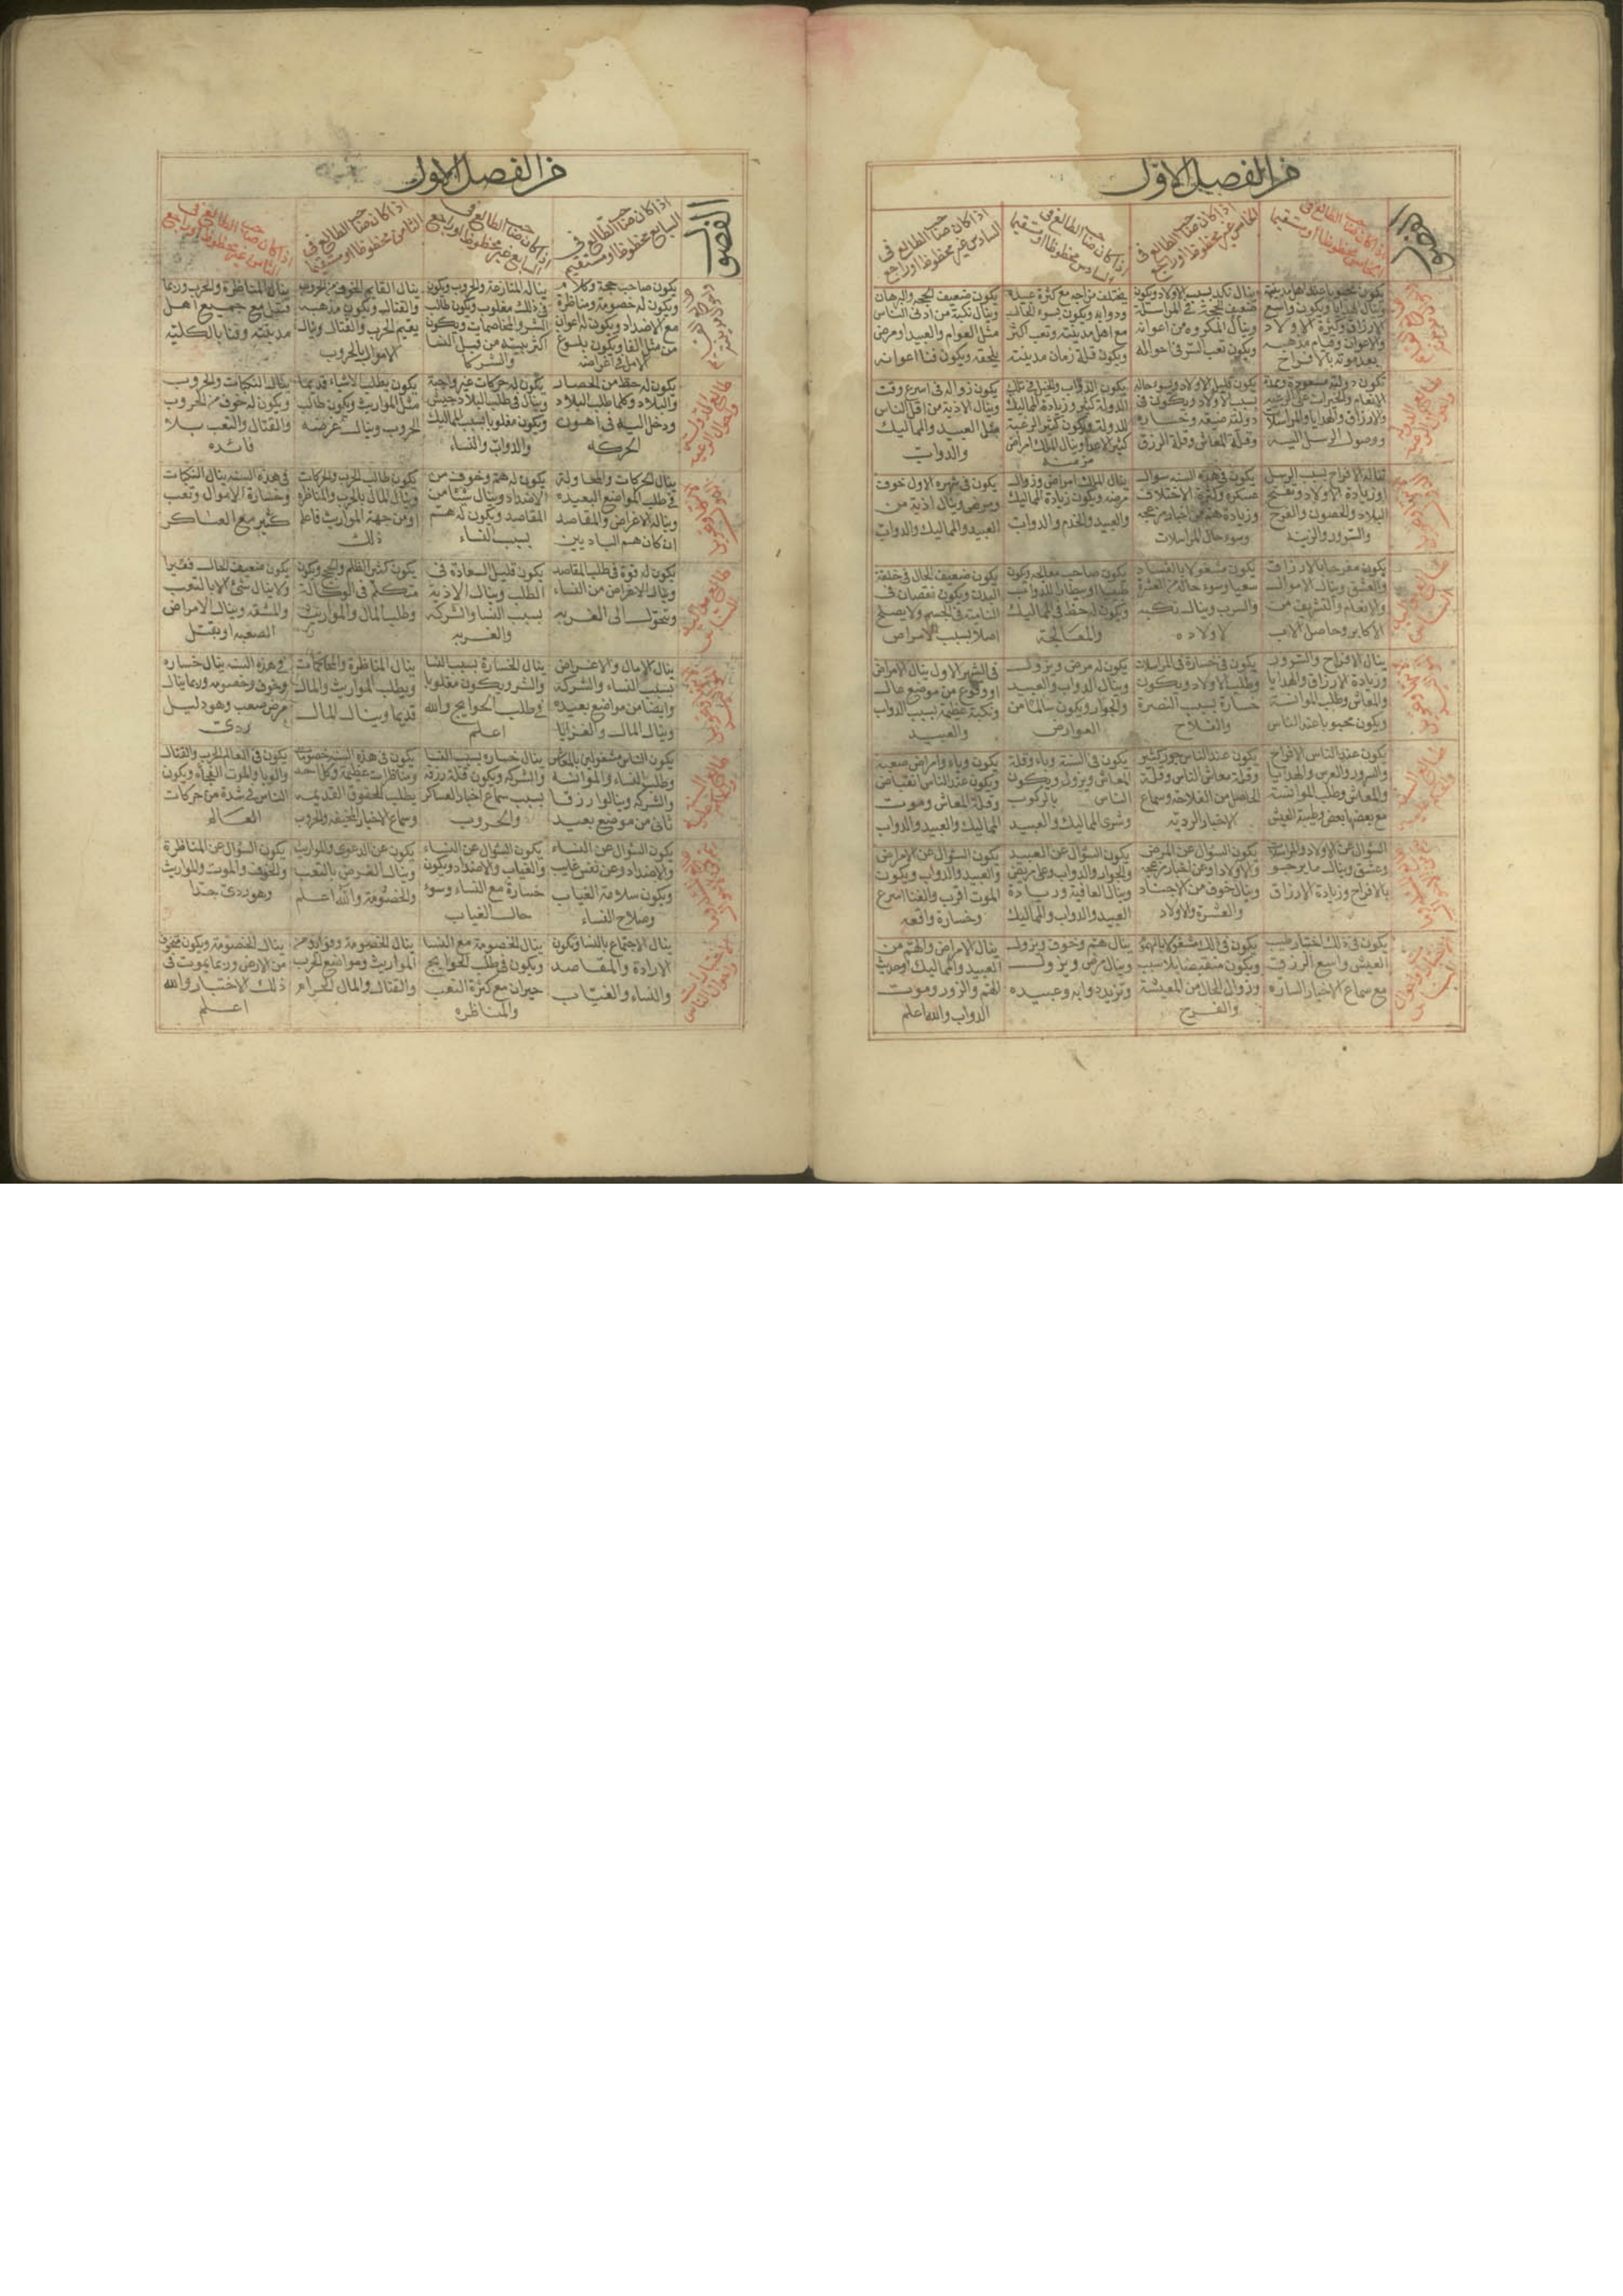 من الفصل الاول
الفصول
اذا كان صاحب الطالع فى
الخامس محظوظا او مستقيما
اذا كان صاحب الطالع فى
الخامس غير محظوظ او راجع
اذا كان صاحب الطالع فى
السادس محظوظا او مستقيما
اذا كان صاحب الطالع فى
السادس غير محظوظ او راجع
يكون محبوبا عند اهل مدينته
وينال الهدايا ويكون واسع
الارزاق وكثرة الاولاد
والاعوان وقيام مذهبه
بعد موته بالافراح
ينال نكد بسبب الاولاد ويكون
ضعيف الحجة فى المراسلة
وينال المكروه من اعوانه
ويكون تعب السر فى احواله
يختلف مزاجه مع كثرة عبيده
ودوابه ويكون بسوء الحال
مع اهل مدينته وتعب اكثر
ويكون قلة زمان مدينته
يكون ضعيف الحجة والبرهان
وينال نكبة من ادنى الناس
مثل العوام والعبيد او مرض
يلحقه ويكون فنا اعوانه
تكون دولته مسعودة ومدة
الانعام والخيرات على الرعية
والارزاق والهدايا والمراسلات
ووصول الرسل اليه
يكون قليل الاولاد وسوء حاله
بسبب الاولاد ويكون فى
دولته ضيعه وخساره
وقلة المعاش وقلة الرزق
يكون الدواب والخيل فى تلك
الدولة كثير وزيادة المماليك
للدولة ويكون كثير الرغبة
كثير الاعدا وينال الملك امراض
مزمنه
يكون زواله فى اسرع وقت
وينال الاذية من اقل الناس
مثل العبيد والمماليك
والدواب
تناله الافراح بسبب الرسل
او زيادة الاولاد ويفتح
البلاد والحصون والفرح
والسرور والزينه
يكون فى هذه السنه سوال
عسكره وكثرة الاختلاف
وزيادة هم من اخبار مزعجه
وسوء حال المراسلات
ينال الملك امراض وزوال
مرضه ويكون زيادة المماليك
والعبيد والخدم والدواب
يكون فى شهره الاول خوف
ومرض وينال اذية من
العبيد والمماليك والدواب
يكون مفرحا بالارزاق
والعشق وينال الاموال
والانعام والتشريف من
الاكابر وحاصل الاب
يكون مشغولا بالفساد
سعيا وسوء حاله من العشرة
والسرب وينال نكبه
لاولاده
يكون صاحب معالجه ويكون
طبيبا او بيطار للدواب
ويكون له حظ فى المماليك
والمعالجة
يكون ضعيف الحال فى خلقة
البدن ويكون نقصان فى
النامية فى الجسم ولا يصلح
اصلا بسبب الامراض
ينال الافراح والسرور
وزيادة الارزاق والهدايا
والمعاش وطلب الموانسة
ويكون محبوبا عند الناس
يكون فى خسارة فى المراسلات
وطلب الاولاد ويكون
خسارة بسبب النصرة
والفلاح
يكون له مرض ويزول
وينال الدواب والعبيد
والجوار ويكون سالما من
العوارض
فى الشهر الاول ينال الامراض
او وقوع من موضع عال
ونكبة عظيمة بسبب الدواب
والعبيد
يكون عند الناس الافراح
والسرور والعرس والهدايا
والمعاش وطلب الموانسة
مع بعضها بعض وطيبة العيش
يكون عند الناس جور كثير
وقلة معاش الناس وقلة
الحاصل من الفلاحة وسماع
الاخبار الرديه
يكون فى السنة وباء وقلة
المعاش ويزول ويكون
الناس بالركوب
وشرى المماليك والعبيد
يكون وباء وامراض صعبة
ويكون عند الناس انقباض
وقلة المعاش وموت
المماليك والعبيد والدواب
السؤال عن الاولاد والمراسلات
وعشق وينال ما يرجو
بالافراح وزيادة الارزاق
يكون السؤال عن المرض
والاولاد او عن اخبار مزعجه
وينال خوف من الاجناد
والعشرة والاولاد
يكون السؤال عن العبيد
والجوار والدواب وعلى مريض
وينال العافية وزيادة
العبيد والدواب والمماليك
يكون السؤال عن الامراض
والعبيد والدواب ويكون
الموت اقرب والفنا اسرع
وخسارة واقعه
يكون فى ذلك اختيار طيب
العيش واسع الرزق
مع سماع الاخبار الساره
يكون فى ذلك مشغولا بالهموم
ويكون منقبضا بلا سبب
وزوال الحال من المعيشة
والفرح
ينال هم وخوف ويزول
وينال مرض ويزول
وتزيد دوابه وعبيده
ينال الامراض والهم من
العبيد والمماليك او حدث
الهم والزور وموت
الدواب والله اعلم
من الفصل الاول
الفصول
اذا كان صاحب الطالع فى
السابع محظوظا او مستقيم
اذا كان صاحب الطالع فى
السابع غير محظوظ او راجع
اذا كان صاحب الطالع فى
الثامن محظوظا او مستقيما
اذا كان صاحب الطالع فى
الثامن غير محظوظ او راجع
يكون صاحب حجة وكلام
ويكون له خصومة ومناظرة
مع الاضداد ويكون له اعوان
من مثل الفا ويكون بلوغ
الامل فى اغراضه
يناله المنازعة والحروب ويكون
فى ذلك مغلوب ويكون طالب
الشر والمخاصمات ويكون
اكثر بيته من قبل النسا
والشركا
ينال القايم الخوف من الحروب
والقتال ويكون مذهبه
يقيم الحرب والقتال وينال
الاموال بالحروب
ينال المناظرة والحرب وربما
قتل مع جميع اهل
مدينته وفنا بالكلية
يكون له حظ من الحصار
والبلاد وكلما طلب البلاد
ودخل اليه فى اهون
الحركه
يكون له حركات غير واجبة
وينال فى طلب البلاد جيش
ويكون مغلوبا بسبب المماليك
والدواب والنساء
يكون يطلب الاشياء قديما
مثل المواريث ويكون طالب
الحروب وينال غرضه
ينال النكبات والحروب
ويكون له خوف من الحروب
والقتال والتعب بلا
فائده
ينال الحركات والمحاولة
فى طلب المواضع البعيده
ويناله الاغراض والمقاصد
ان كان هم الباديين
يكون له هم وخوف من
الاضداد وينال شئ من
المقاصد ويكون له هم
بسبب النساء
يكون طالب الحرب والحركات
وينال المال بالحرب والمناظره
او من جهة المواريث فاعلم
ذلك
فى هذه السنه ينال النكبات
وخسارة الاموال وتعب
كثير مع العساكر
يكون له قوة فى طلب المقاصد
وينال الاغراض من النساء
ويتحول الى الغربه
يكون قليل السعادة فى
الطلب وينال الاذية
بسبب النسا والشركة
والغربه
يكون كثير الظلم والحج ويكون
متكلم فى الوكالة
وطلب المال والمواريث
يكون ضعيف الحال فقيرا
ولا ينال شئ الا بالتعب
والمشقه وينال الامراض
الصعبه او يقتل
ينال الامال والاغراض
بسبب النساء والشركة
وايضا من مواضع بعيده
وينال المال والغزايا
ينال الخسارة بسبب النسا
والشر ويكون مغلوبا
فى طلب الحوايج والله
اعلم
ينال المناظرة والمحاكمات
ويطلب المواريث والمال
قديما وينال المال
فى هذه السنه ينال خساره
وخوف وخصومه وربما ينال
مرض صعب وهو دليل
ردئ
يكون الناس مشغولين بالمعاش
وطلب النساء والموانسة
والشركه وينالوا رزقا
ثانى من موضع بعيد
ينال خساره بسبب النسا
والشركه ويكون قلة رزقه
بسبب سماع اخبار العساكر
والحروب
يكون فى هذه السنه خصومات
ومناظرات عظيمة وكل احد
يطلب الحقوق القديمه
وسماع الاخبار المخيفه والحروب
يكون فى العالم الحرب والقتال
والوبا والموت الفجاه ويكون
الناس فى شدة من حركات
العالم
يكون السؤال عن النساء
والاضداد وعن نفس غايب
ويكون سلامة الغياب
وصلاح النساء
يكون السؤال عن النساء
والغياب والاضداد ويكون
خسارة مع النساء وسوء
حال الغياب
يكون عن الدعوى والمواريث
وينال الغرض بالتعب
والخصومة والله اعلم
يكون السؤال عن المناظرة
والخوف والموت والمواريث
وهو ردئ جدا
ينال الاجتماع بالنسا ويكون
الارادة والمقاصد
والنساء والغياب
ينال الخصومة مع النسا
ويكون فى طلب الحوايج
حيران مع كثرة التعب
والمناظره
ينال الخصومة وفوايد من
المواريث ومواضع الحرب
والقتال والمال الحرام
ينال الخصومة ويكون مخوف
من الارض وربما يموت فى
ذلك الاختيار والله
اعلم